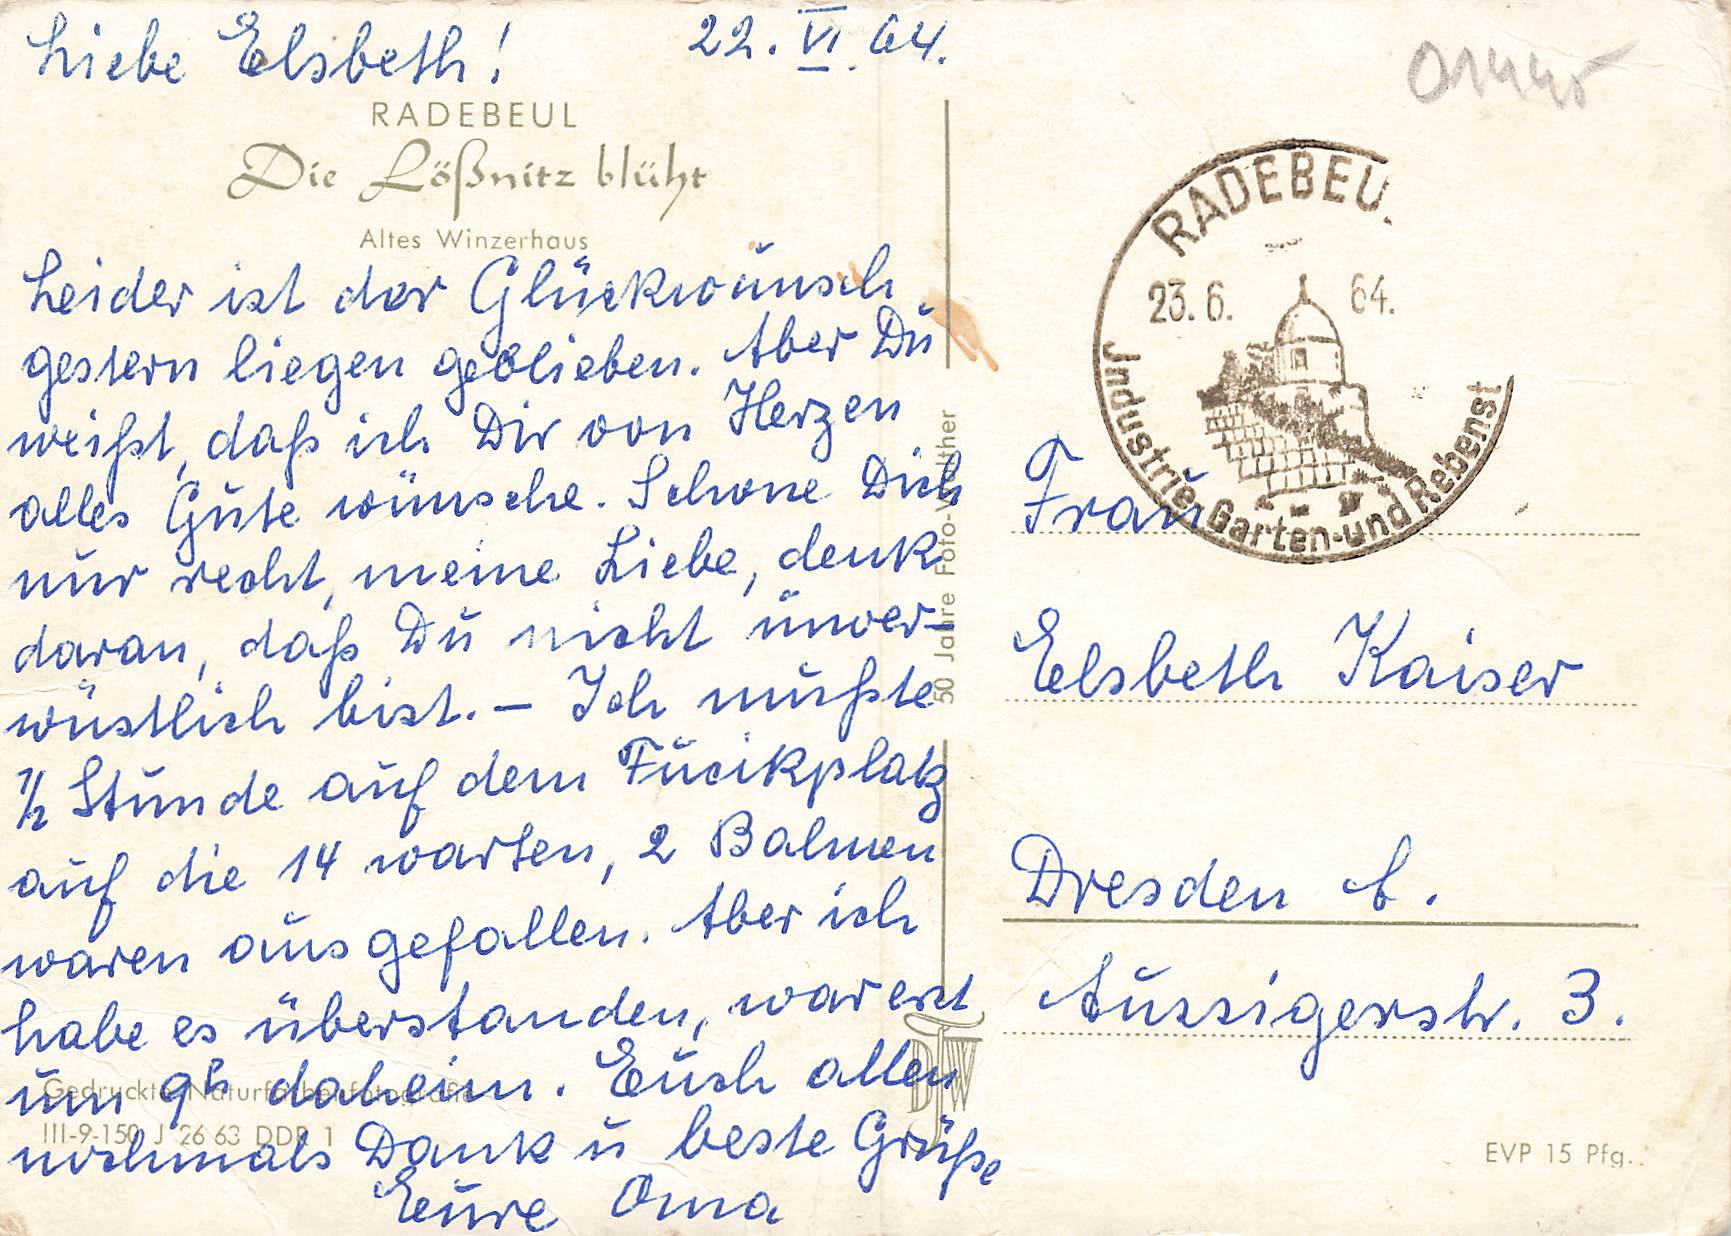 Liebe Elsbeth!
22. VI. 64.
RADEBEUL
Die Lößnitz blüht
Altes Winzerhaus
Leider ist der Glückwunsch
gestern liegen geblieben. Aber Du
weißt, daß ich Dir von Herzen
alles Gute wünsche. Schone Dich
nur recht, meine Liebe, denk
daran, daß Du nicht unver-
wüstlich bist. – Ich mußte
1/2 Stunde auf dem Fucikplatz
auf die 14 warten, 2 Bahnen
waren ausgefallen. Aber ich
habe es überstanden, war erst
um 9h daheim. Euch allen
nochmals Dank u beste Grüße
Eure Oma
Gedruckte Naturfarbenfotografie
III-9-150 J 26 63 DDR 1
50 Jahre Foto-Walther
DFW
01445
RADEBEUL
23.6. 64.
Industrie, Garten-und Rebenst
Frau
Elsbeth Kaiser
Dresden A.
Aussigerstr. 3.
EVP 15 Pfg.